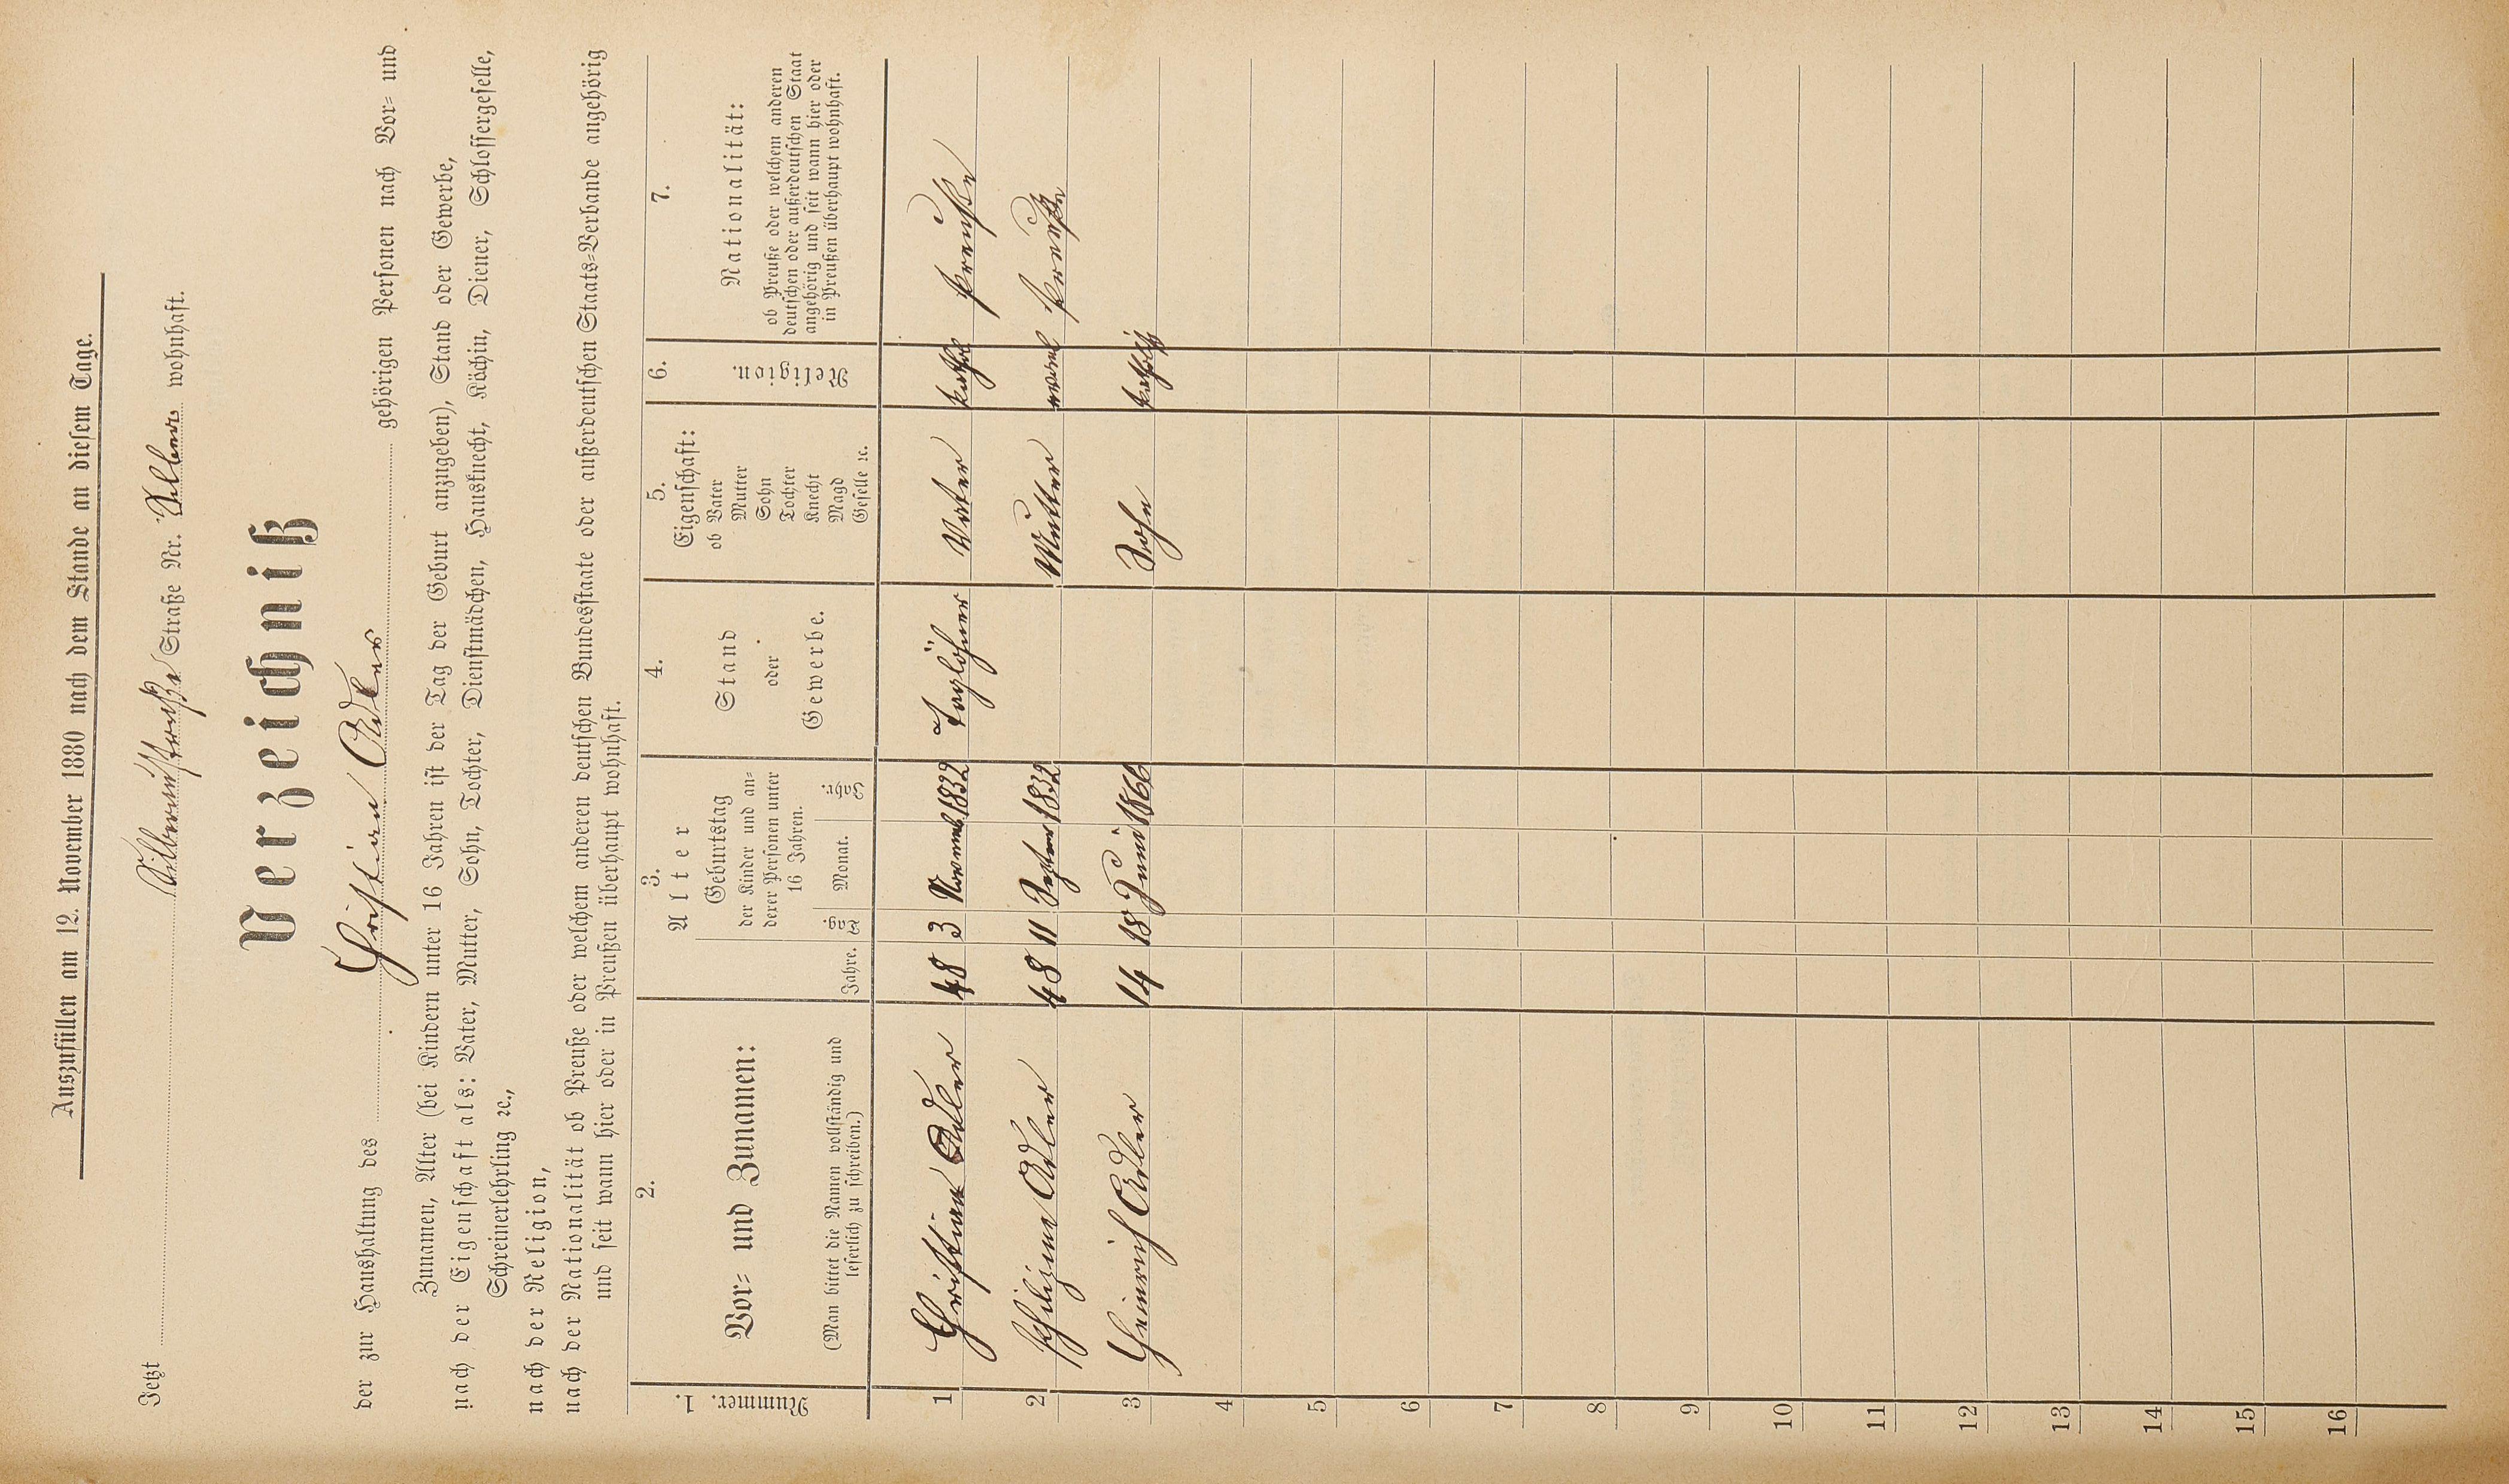 Auszufüllen am 12. November 1880 nach dem Stande an diesem Tage.
Jetzt Straße Nr. wohnhaft.
Verzeichniß
der zur Haushaltung des Christian Adler gehörigen Personen nach Vor- und
Zunamen, Alter (bei Kindern unter 16 Jahren ist der Tag der Geburt anzugeben), Stand oder Gewerbe,
nach der Eigenschaft als: Vater, Mutter, Sohn, Tochter, Dienstmädchen, Hausknecht, Köchin, Diener, Schlossergeselle,
Schreinerlehrling ꝛc.,
nach der Religion,
nach der Nationalität ob Preuße oder welchem anderen deutschen Bundesstaate oder außerdeutschen Staats-Verbande angehörig
und seit wann hier oder in Preußen überhaupt wohnhaft.
1.
Nummer.
2.
Vor- und Zunamen:
(Man bittet die Namen vollständig und
leserlich zu schreiben.)
3.
Alter
Jahre.
Geburtstag
der Kinder und an-
derer Personen unter
16 Jahren.
Tag Monat. Jahr.
4.
Stand
oder
Gewerbe.
5.
Eigenschaft:
ob Vater
Mutter
Sohn
Tochter
Knecht
Magd
Geselle ꝛc.
6.
Religion.
7.
Nationalität:
ob Preuße oder welchem anderen
deutschen oder außerdeutschen Staat
angehörig und seit wann hier oder
in Preußen überhaupt wohnhaft.
1 Christian Adler 48 3 Novemb 1832 Taglöhner Vater kathol Preuße
2 Adler 48 11 1832 Mutter Preuße
3 Heinrich Adler 14 18 Juni 1866 Sohn katholisch
4
5
6
7
8
9
10
11
12
13
14
15
16